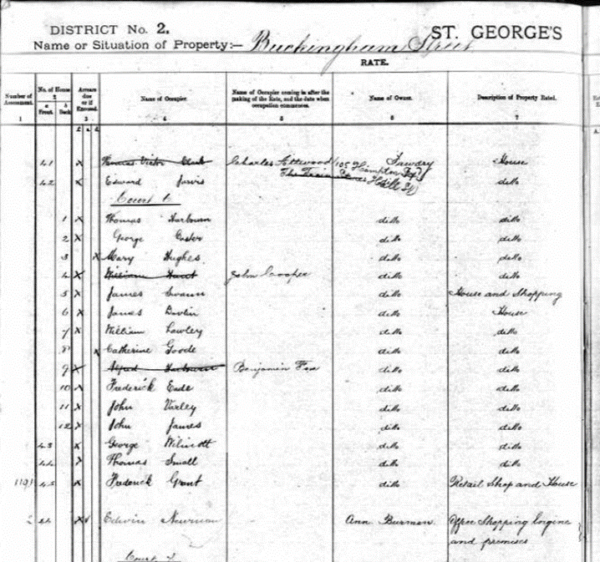 DISTRICT No. 2.
ST. GEORGE'S
Name or Situation of Property:— Buckingham Street
RATE.
Number of Assessment. No. of House Arrears due or if Excused. Name of Occupier. Name of Occupier coming in after the making of the Rate, and the date when occupation commences. Name of Owner. Description of Property Rated.
Front. Back.
1 2 3 4 5 6 7
41 x Thomas Club Charles Attwood Tawdry House
42 x Edward Jarvis ditto ditto
Court 1.
1 x Thomas ditto ditto
2 x George ditto ditto
3 x Mary Hughes ditto ditto
4 x William Hunt John Cooper ditto ditto
5 x James Swann ditto House and Shopping
6 x James Devlin ditto House
7 x William Lawley ditto ditto
8 x Catherine Goode ditto ditto
9 x Alfred Benjamin Fox ditto ditto
10 x Frederick ditto ditto
11 x John Varley ditto ditto
12 x John James ditto ditto
43 x George ditto ditto
44 x Thomas Small ditto ditto
45 x Frederick Grant ditto Retail Shop and House
x Edwin Newman Ann Burman Office Shopping Engine
and premises
Court